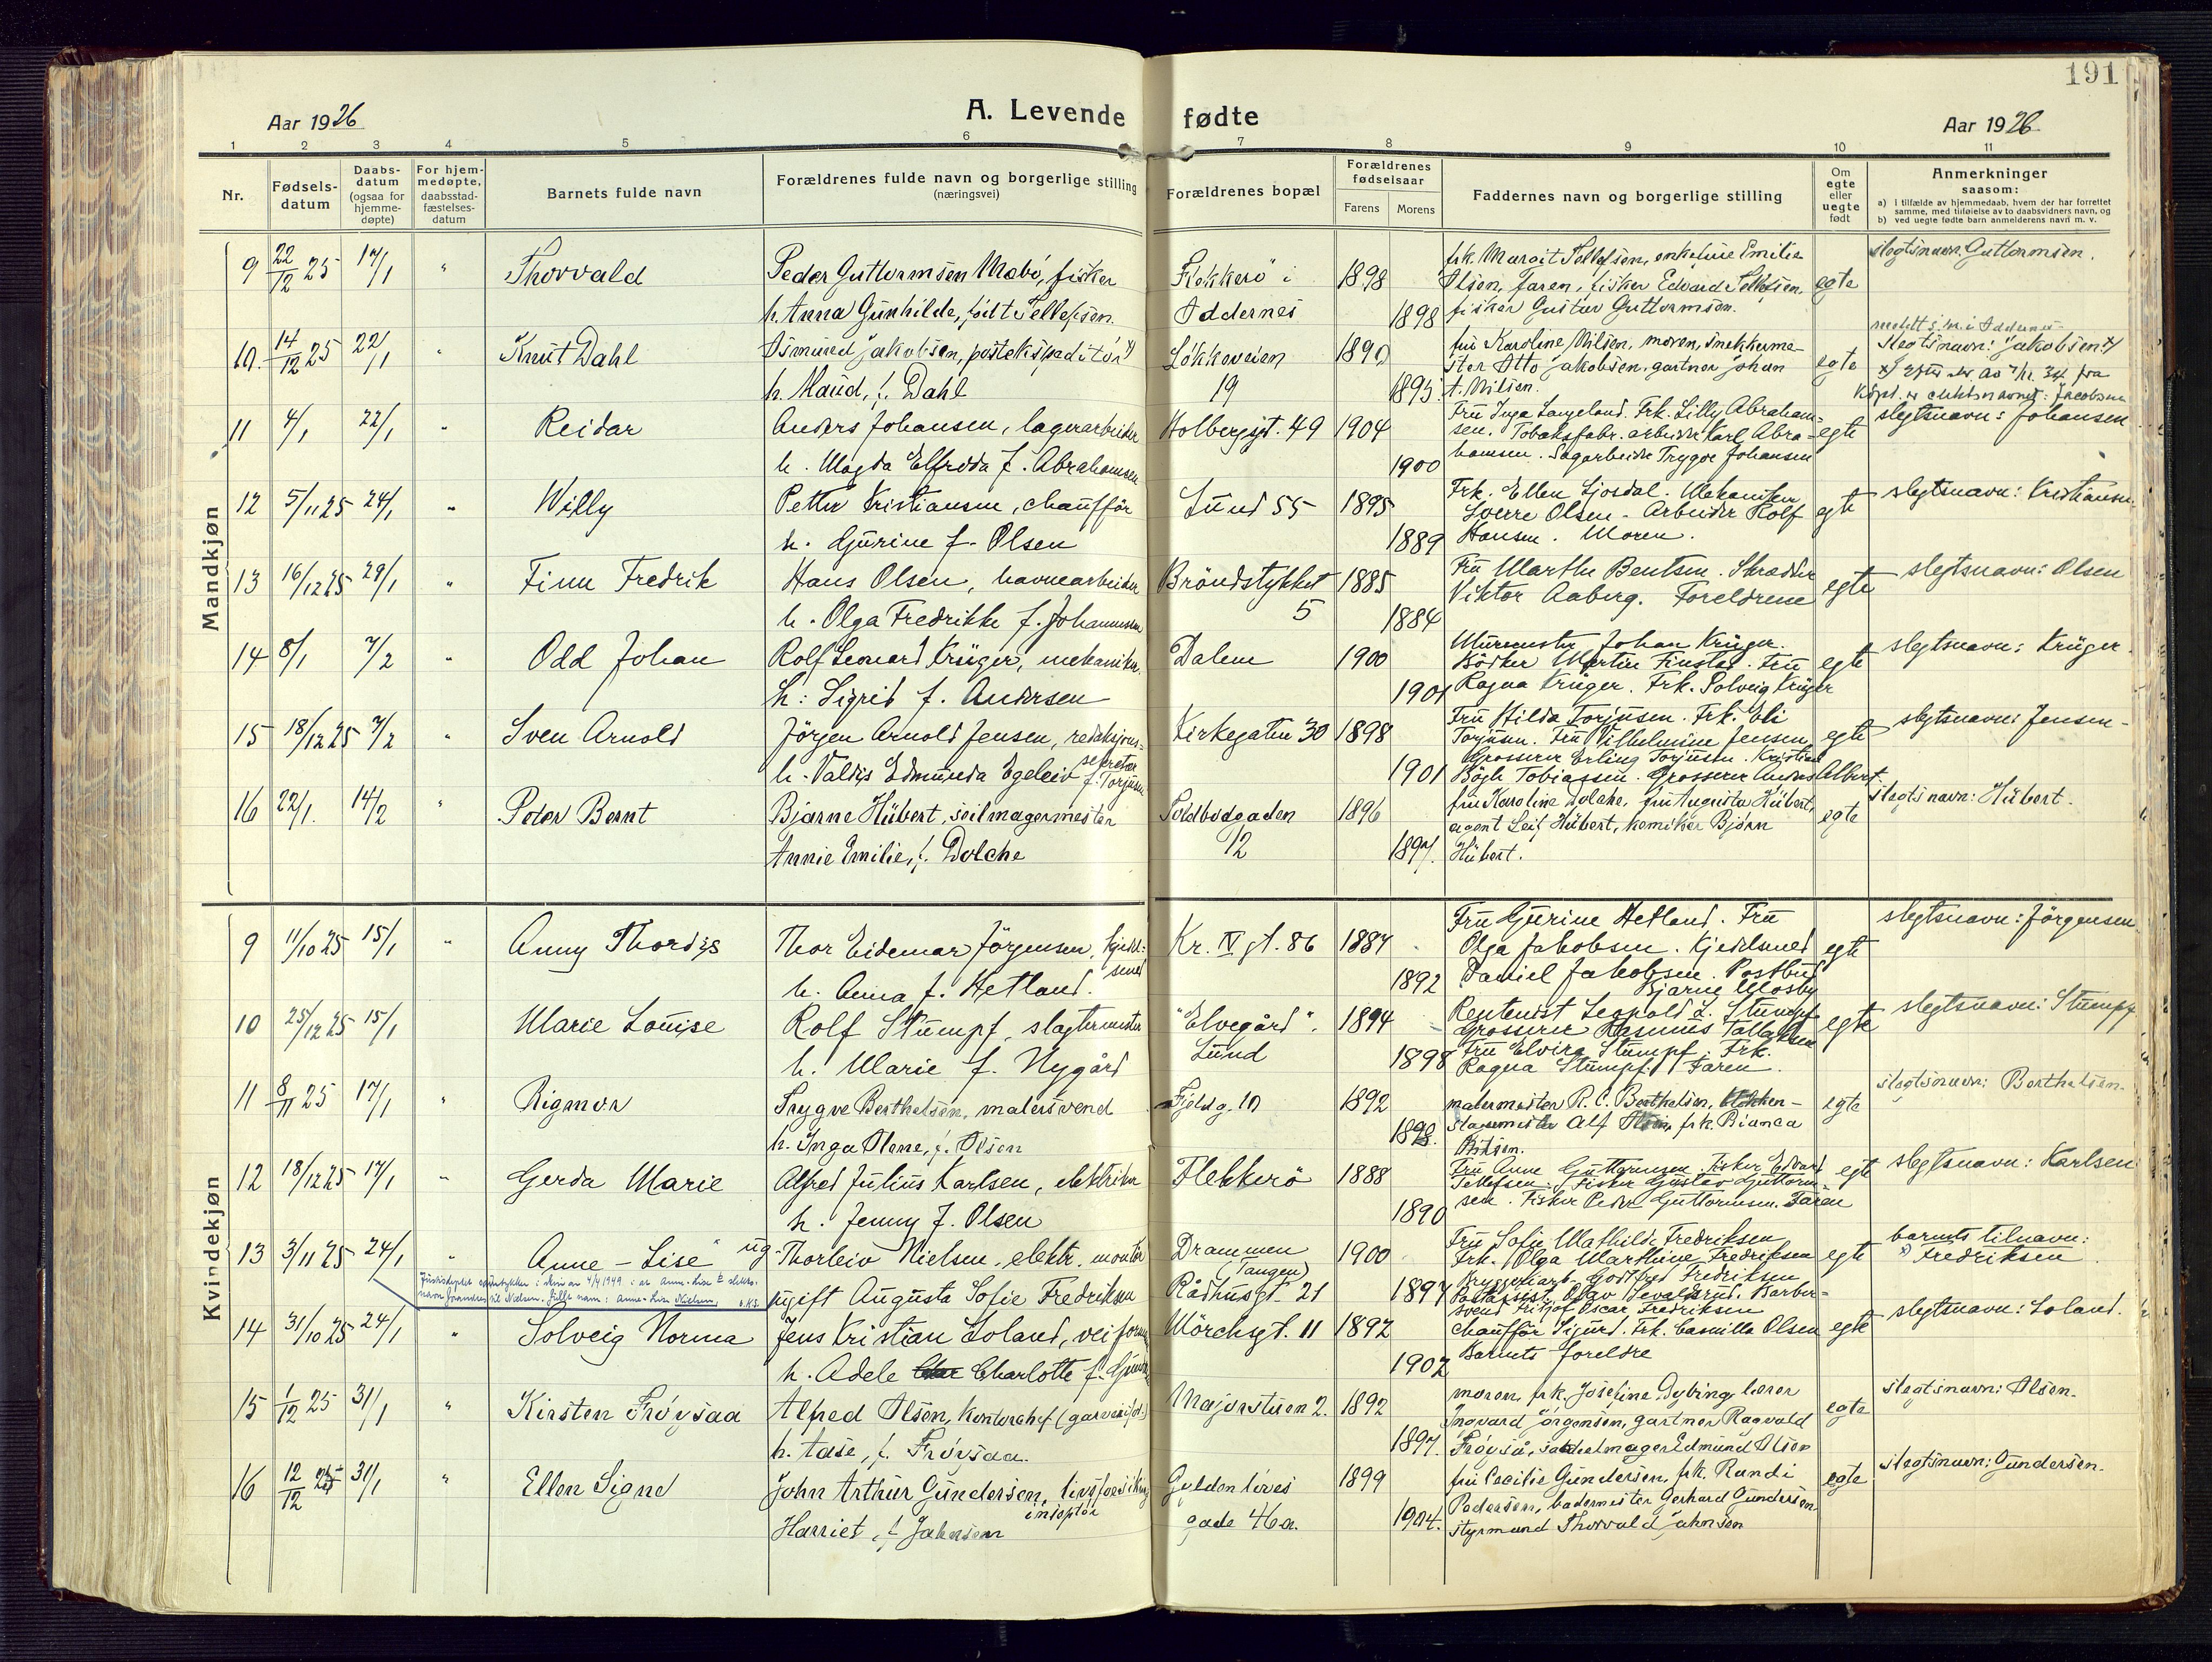 191
Aar 1926
A. Levende fødte
Aar 1926
1 2 3 4 5 6 7 8 9 10 11
Nr.
Fødsels-
datum
Daabs-
datum
(ogsaa for
hjemme-
døpte)
For hjem-
medøpte,
daabsstad-
fæstelses-
datum
Barnets fulde navn
Forældrenes fulde navn og borgerlige stilling
(næringsvei)
Forældrenes bopæl
Forældrenes
fødselsaar
Farens Morens
Faddernes navn og borgerlige stilling
Om
egte
eller
uegte
født
Anmerkninger
saasom:
a) i tilfælde av hjemmedaab, hvem der har forrettet
samme, med tilføielse av to daabsvidners navn, og
b) ved uegte fødte barn anmelderens navn m. v.
Mandkjøn
9 22/12 25 17/1 " Thorvald
Peder Guttormsen Mæbö, fisker
h. Anna Gunhilde, født Tellefsen.
Flekkerö i
Oddernes
1898
1898
frk. Margit Tellefsen, enkefrue Emilie
Olsen, faren, fisker Edvard Tellefsen,
fisker Gustav Guttormsen.
egte
slegtsnavn: Guttormsen.
10. 14/12 25 22/1 " Knut Dahl
Osmund Jakobsen, postekspeditör x)
h. Maud, f. Dahl
Løkkeveien
19
1890
1895.
fru Karoline Nilsen, moren, snekkerme-
ster Otto Jakobsen, gartner Johan
A. Nilsen.
egte
slegtsnavn: Jakobsen x)
11 4/1 22/1 " Reidar
Anders Johansen, lagerarbeider
h. Magda Elfrida f. Abrahamsen
Holbergsgt. 49
1904
1900
Fru Inga Langeland. Frk. Lilly Abraham-
sen. Tobaksfabr. arbeider Karl Abra-
hamsen. Sagarbeider Trygve Johansen
egte
slegtsnavn: Johansen
12 5/11 25 24/1 " Willy
Petter Kristiansen, chaufför
h. Gurine f. Olsen
Lund 55
1895
1889
Frk. Ellen Ljosdal. Mekaniker
Sverre Olsen - Arbeider Rolf
Hansen. Moren.
egte
slegtsnavn: Kristiansen
13 16/12 25 29/1 " Finn Fredrik
Hans Olsen, havnearbeider
h. Olga Fredrikke f. Johannesen
Bröndstykket
5
1885
1884
Fru Marthe Bentsen. Skrædder
Viktor Aaberg. Foreldrene
egte
slegtsnavn: Olsen
14 8/1 7/2 " Odd Johan
Rolf Leonard Krüger, mekaniker.
h: Sigrid f. Andersen
Dalen
1900
1901
Murmester Johan Krüger.
Bödker Martin Finstad. Fru
Ragna Krüger. Frk. Solveig Krüger
egte
slegtsnavn: Krüger
15 18/12 25 7/2 " Sven Arnold
Jörgen Arnold Jensen, redaksjons-
sekretær
h. Valdis Edmunda Egeleiv f. Torjusen
Kirkegaten 30
1898
1901
Fru Hilda Torjusen. Frk. Eli
Torjusen. Fru Vilhelmine Jensen
Grosserer Erling Torjusen. Kristian
Bögh Tobiassen. Grosserer Anders Albert.
egte
slegtsnavn: Jensen -
16 22/1. 14/2 " Peter Bernt
Bjarne Hübert, seilmagermester
Annie Emilie, f. Dolche
Toldbodgaden
12
1896
1897.
fru Karoline Dolche, fru Augusta Hübert,
agent Leif Hübert, kemiker Bjørn
Hübert.
egte
slegtsnavn: Hübert.
Kvindekjøn
9 11/10 25 15/1 " Anny Thordis
Thor Eidemar Jörgensen, kjedel-
smed
h. Anna f. Hetland.
Kr. IV gt. 86
1884
1892
Fru Gurine Hetland. Fru
Olga Jakobsen. Kjedelsmed
Daniel Jakobsen. Postbud
Bjarne Mosby
egte
slegtsnavn: Jörgensen
10 25/12 25 15/1 Marie Louise
Rolf Stumpf, slagtermester
h. Marie f. Nygård
"Elvegård".
Lund
1894
1898
Rentenist Leopold L. Stumpf
Grosserer Rasmus Tallaksen
Fru Elvira Stumpf. Frk.
Ragna Stumpf. Faren.
egte
slegtsnavn: Stumpf
11 8/11 25 17/1 " Rigmor
Trygve Berthelsen, malersvend
h. Inga Olene, f. Olsen
Fjeldg. 10
1892
1898.
malermester R. C. Berthelsen,
Alf frk. Bianca
egte
slegtsnavn: Berthelsen.
12 18/12 25 17/1 " Gerda Marie
Alfred Julius Karlsen, elektriker
h. Jenny f. Olsen
Flekkerö
1888
1890
Fru Anne Guttormsen. Fisker Edvard
Tellefsen. Fisker Gustav Guttorm-
sen. Fisker Peder Guttormsen. Faren
egte
slegtsnavn: Karlsen
13 3/11 25 24/1 " Anne - Lise
ug. Thorleiv Nielsen, elektr. montör
ugift Augusta Sofie Fredriksen
Drammen
(Tangen)
Rådhusgt. 21
1900
1897
Fru Sofie Mathilde Fredriksen
Frk. Olga Marthine Fredriksen
Bryggeriarb. Godtfred Fredriksen
Postassist. Olav Barber-
svend Fritjof Oscar Fredriksen
egte
barnets tilnavn:
x) Fredriksen
14 31/10 25 24/1 " Solveig Norma
Jens Kristian Loland, veiformand
h. Adele Charlotte f.
Mörchsgt. 11
1892
1902
Chaufför Sigurd. Frk. Camilla Olsen
Barnets foreldre
egte
slegtsnavn: Loland.
15 1/12 25 31/1 " Kirsten Frøysaa
Alfred Olsen, kontorchef
h. Aase, f. Frøysaa.
Majorstuen 2.
1892
1897.
moren, frk. Josefine Dybing, lærer
Ingvard Jörgensen, gartner Ragvald
Frøyså, Edmund Olsen
egte
slegtsnavn: Olsen.
16 12/12 25 31/1 " Ellen Signe
John Arthur Gundersen, livsforsikrings
inspektør
Harriet, f. Jahnsen
Gyldenløves
gade 46a.
1899
1904.
fru Cecilie Gundersen, frk. Randi
Pedersen, bademester Gerhard Gundersen
styrmand Thorvald Jahnsen
egte
slegtsnavn: Gundersen.